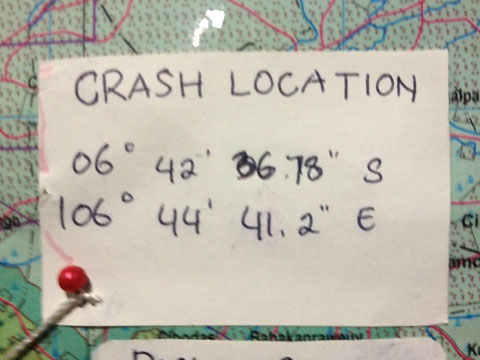 CRASH LOCATION
06° 42' 36.78" S
106° 44' 41.2" E